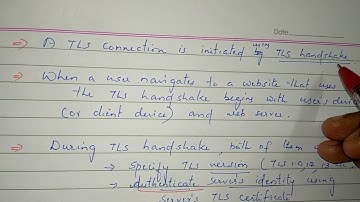 Date
⇒ A TLS connection is initiated by using TLS handshake
⇒ When a user navigates to a website that uses
the TLS handshake begins with user's devi
(or client device) and web server.
⇒ During TLS handshake, both of them
→ Specify TLS version (TLS 1.0, 1.2, 1.3
→ authenticate server's identity using
Server's TLS certificate